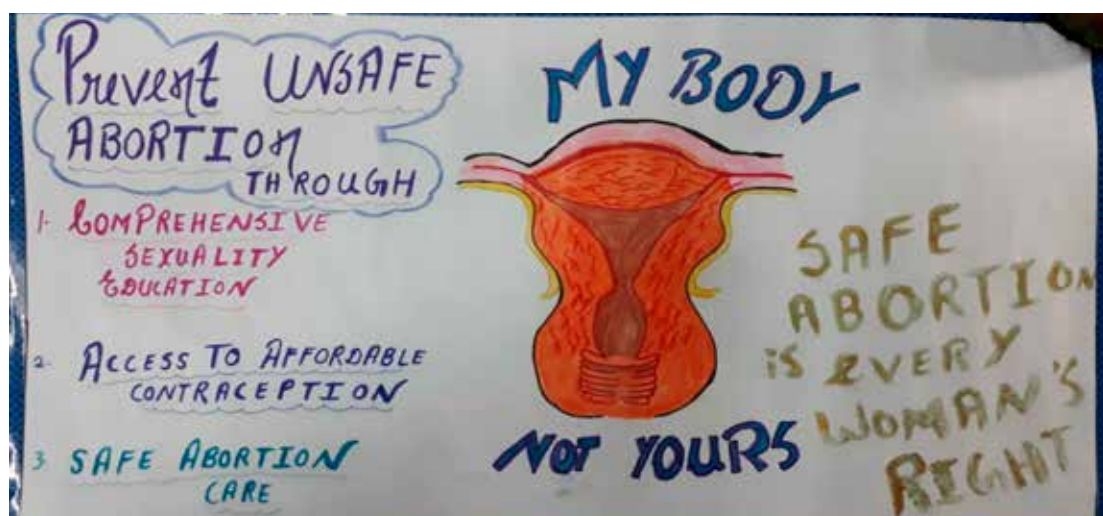 Prevent UNSAFE
ABORTION
THROUGH
1. COMPREHENSIVE
SEXUALITY
EDUCATION
2. ACCESS TO AFFORDABLE
CONTRACEPTION
3. SAFE ABORTION
CARE
MY BODY
NOT YOURS
SAFE
ABORTION
is EVERY
WOMAN'S
RIGHT